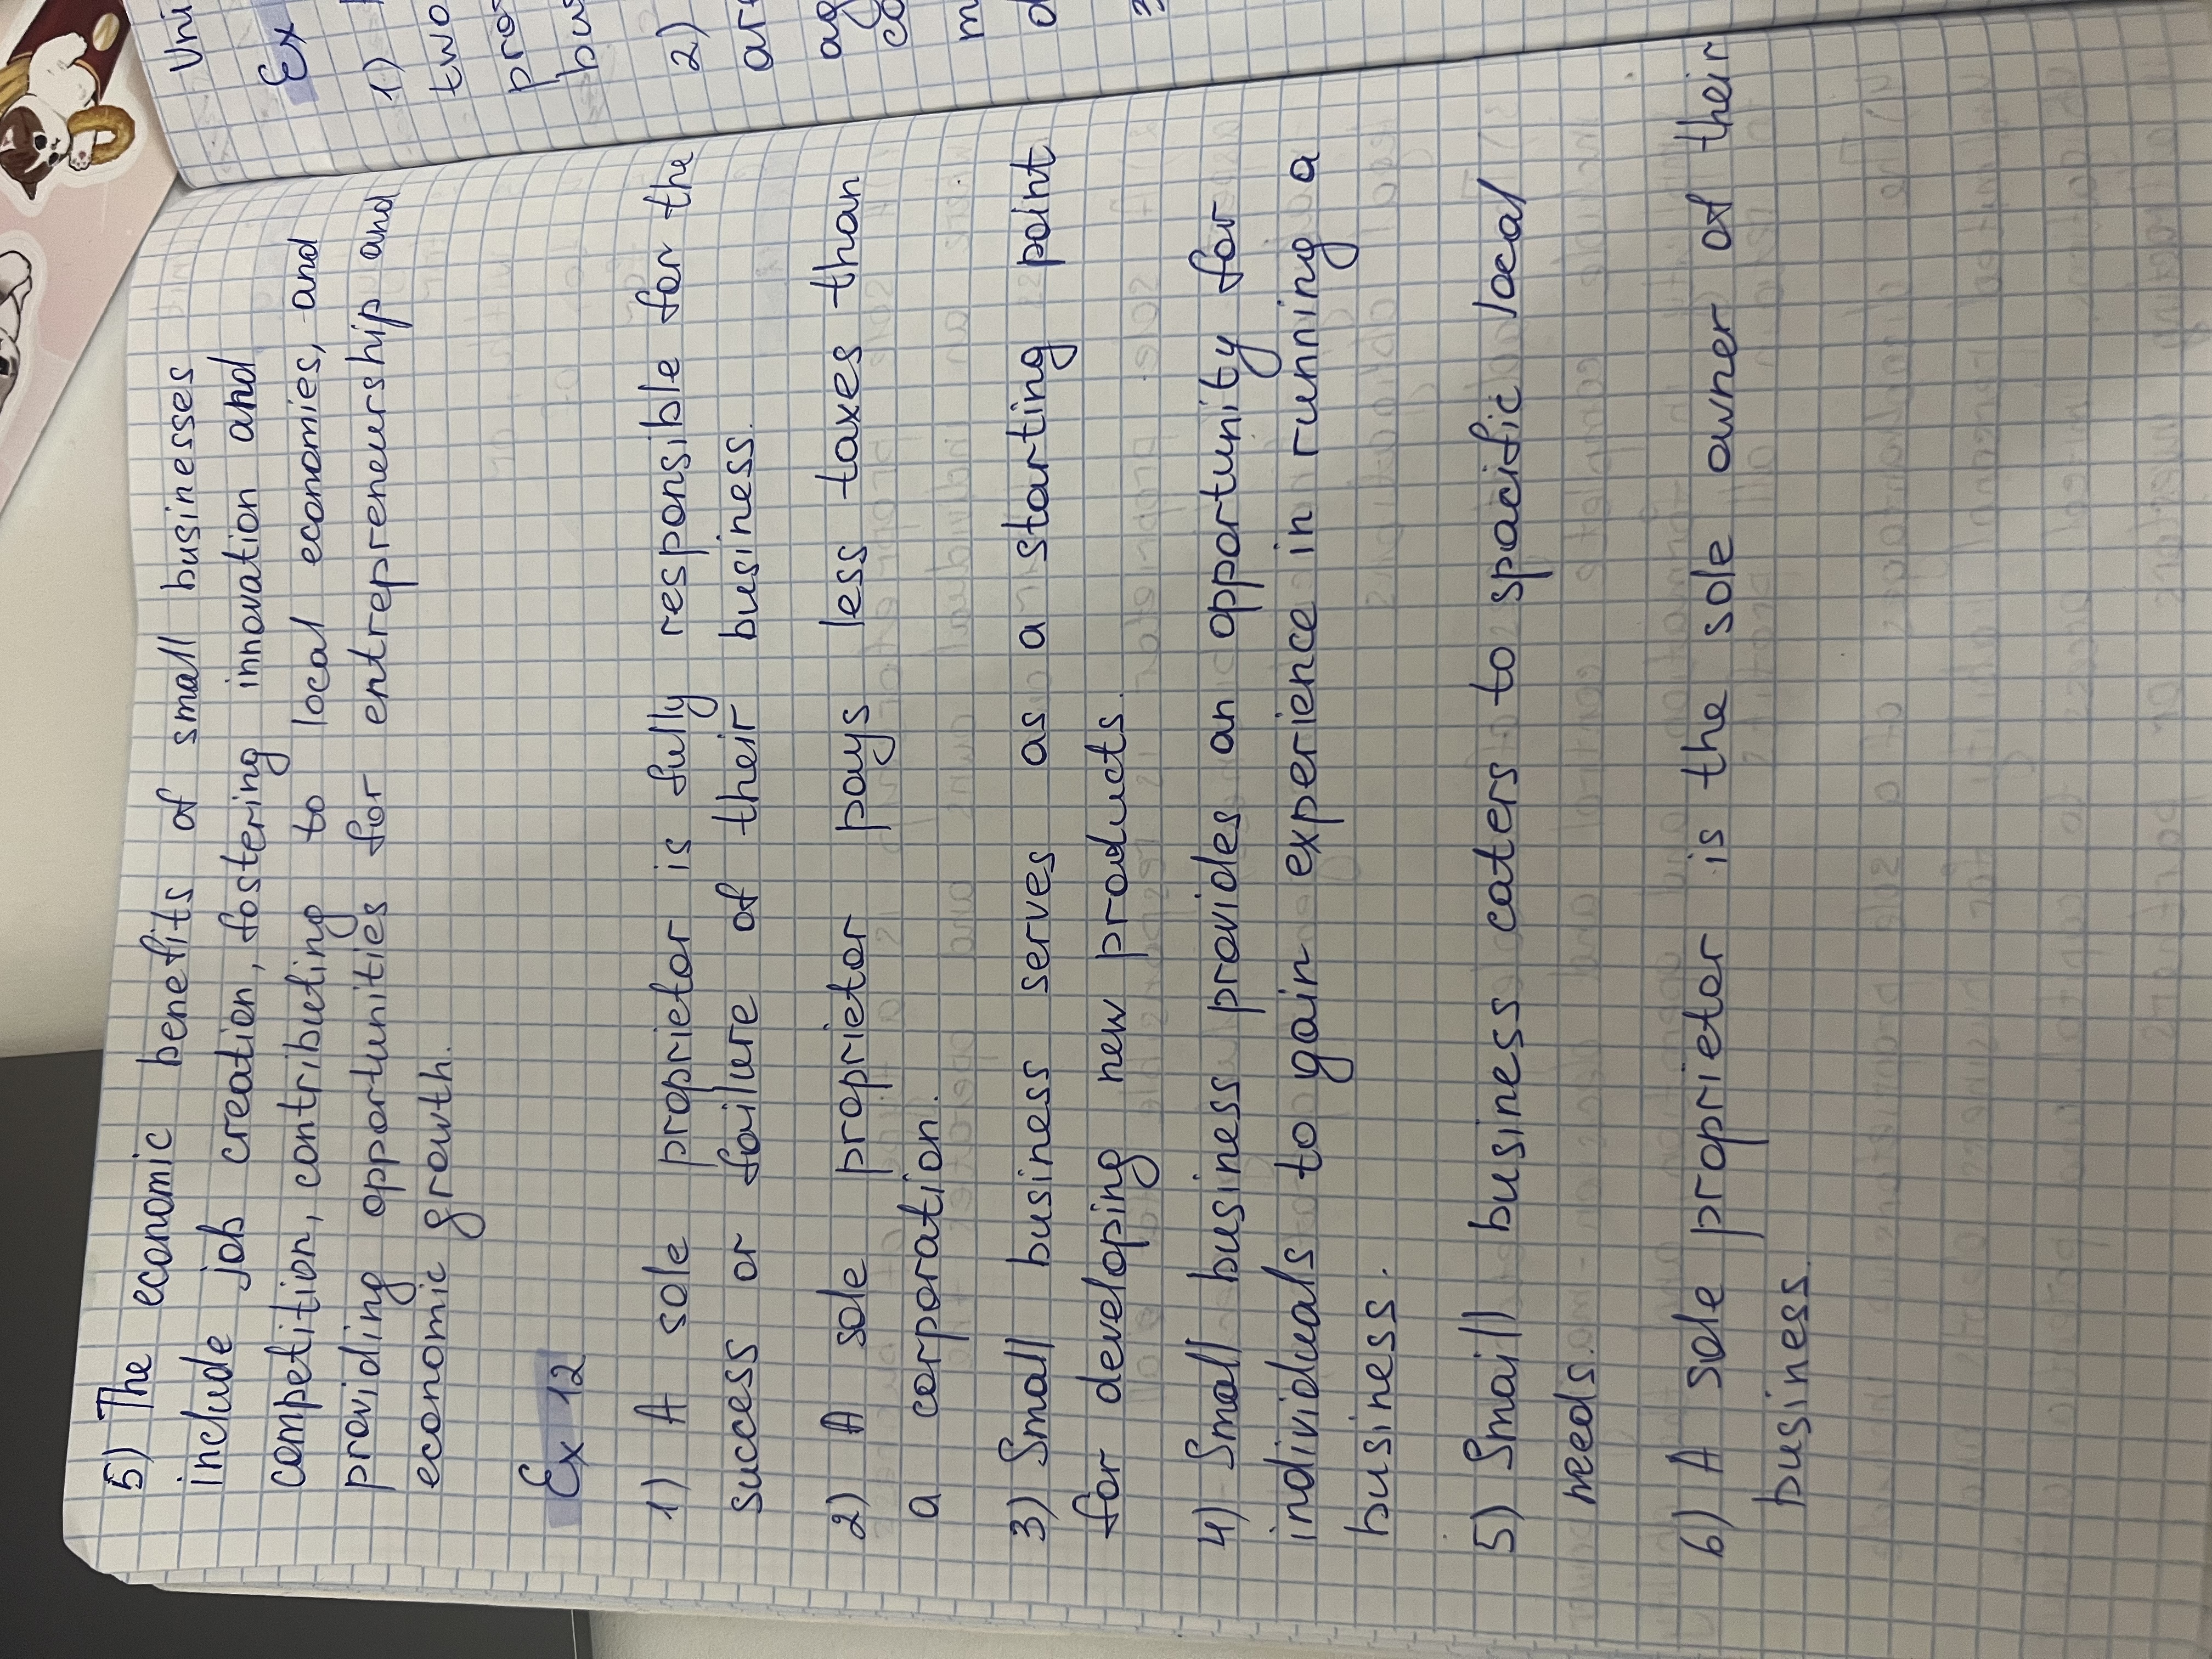 5) The economic benefits of small businesses
include job creation, fostering innovation and
competition, contributing to local economies, and
providing opportunities for entrepreneurship and
economic growth.
Ex 12
1) A sole proprietor is fully responsible for the
success or failure of their business.
2) A sole proprietor pays less taxes than
a corporation.
3) Small business serves as a starting point
for developing new products.
4) Small business provides an opportunity for
individuals to gain experience in running a
business.
5) Smaill business caters to spacific local
needs.
6) A sole proprietor is the sole owner of their
business.
Uni
Ex
1)
two
2)